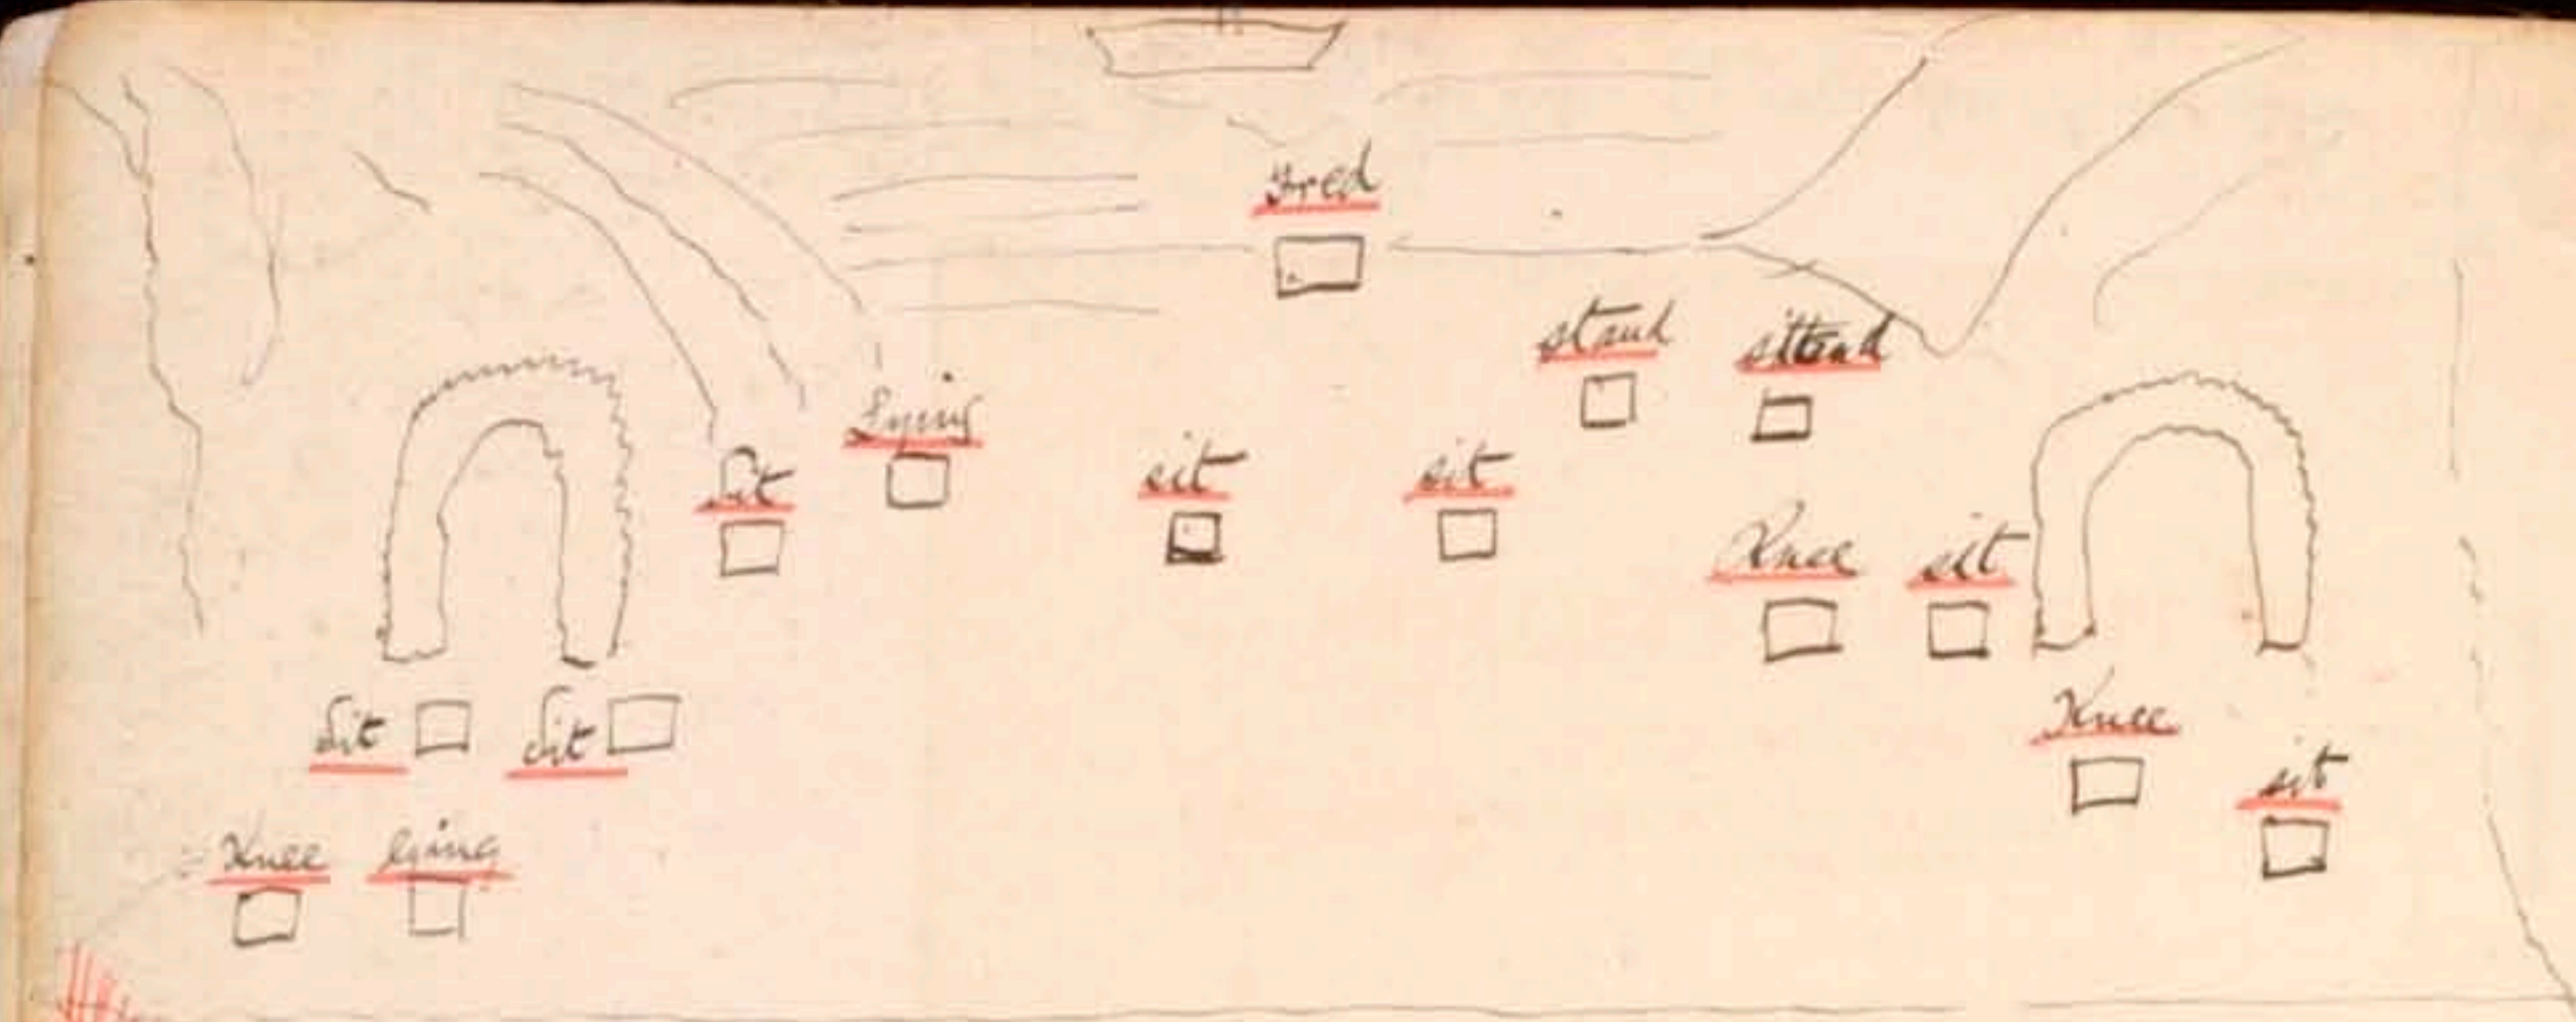 Fred
stand
Lying
Sit
sit
sit
Knee
sit
Sit
Sit
Knee
sit
Knee
lying